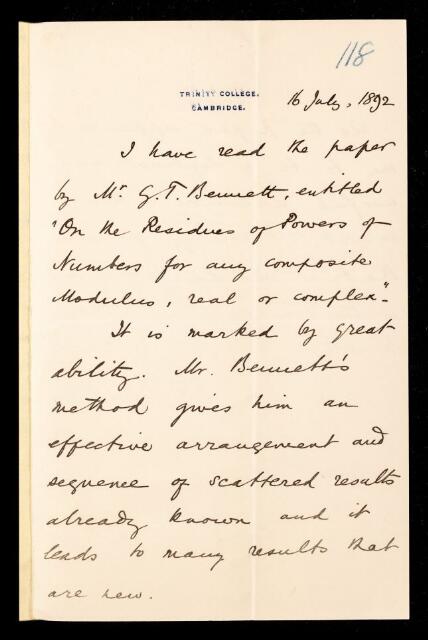 118
TRINITY COLLEGE.
CAMBRIDGE.
16 July, 1892
I have read the paper
by Mr. G. T. Bennett, entitled
"On the Residues of Powers of
Numbers for any composite
Modulus, real or complex".
It is marked by great
ability. Mr. Bennett's
method gives him an
effective arrangement and
sequence of scattered results
already known and it
leads to many results that
are new.